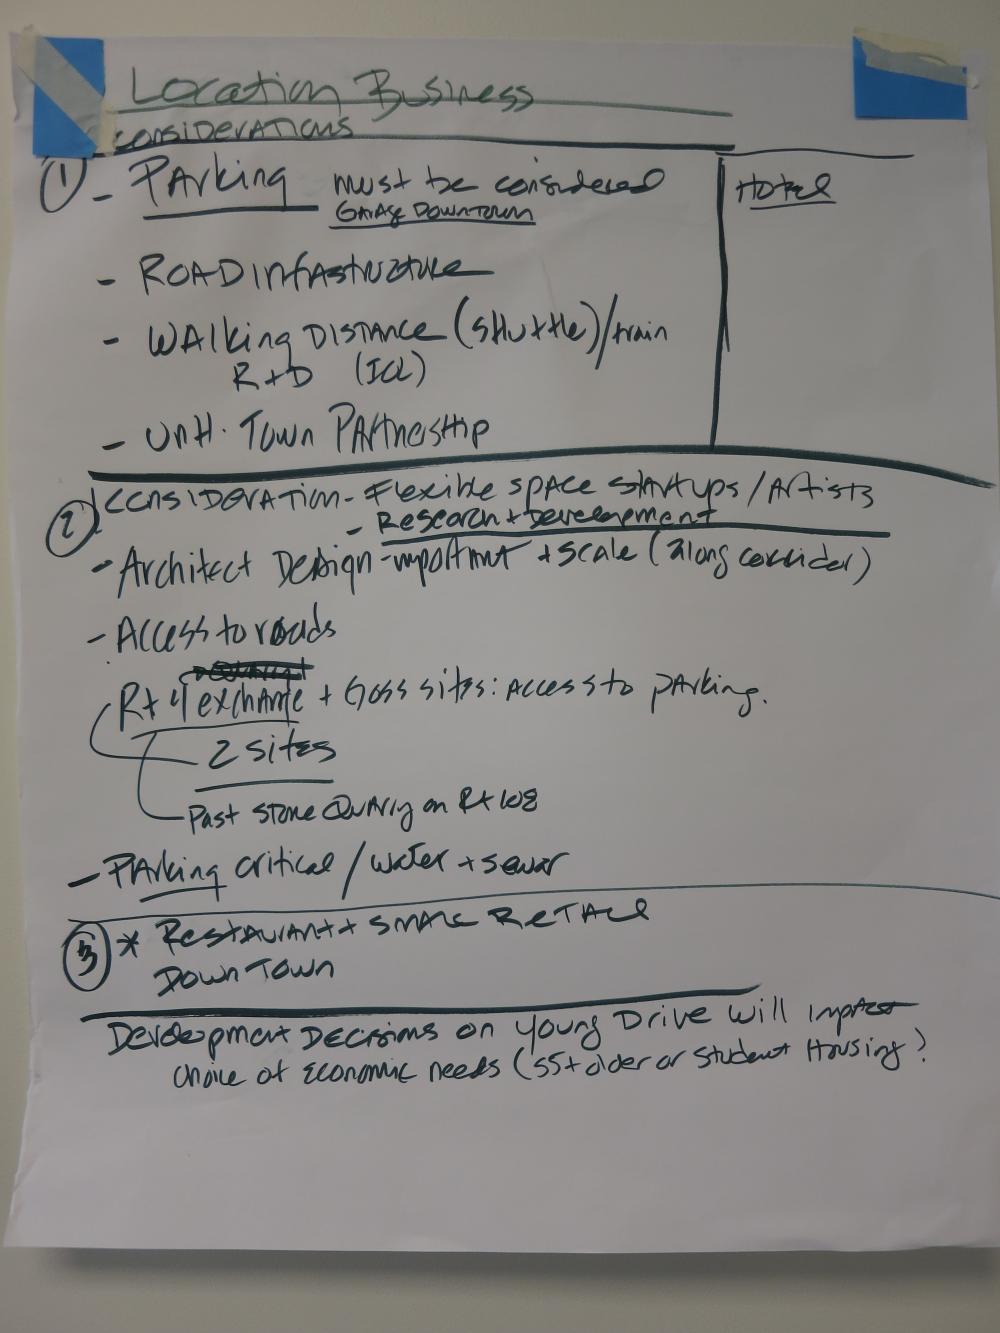 Location Business
CONSIDERATIONS
① - PArking must be considered
GArAge DOWNTOWN
Hotel
- ROAD Infrastructure
- WAlking DISTANCE (SHuttle)/train
R+D (ICL)
- UNH. Town PArtnership
② CONSIDERATION - Flexible space startups / Artists
- Research + Development
- Architect Design - important + scale (along corridor)
- Access to roads
Rt 4 exchange + Goss sites: access to parking.
2 sites
Past stone Quarry on Rt 108
- PArking critical / water + sewer
③ * Restaurant + SMALL RETAIL
DownTown
Development Decisions on Young Drive will impact
choice of economic needs (55+ older or student Housing?